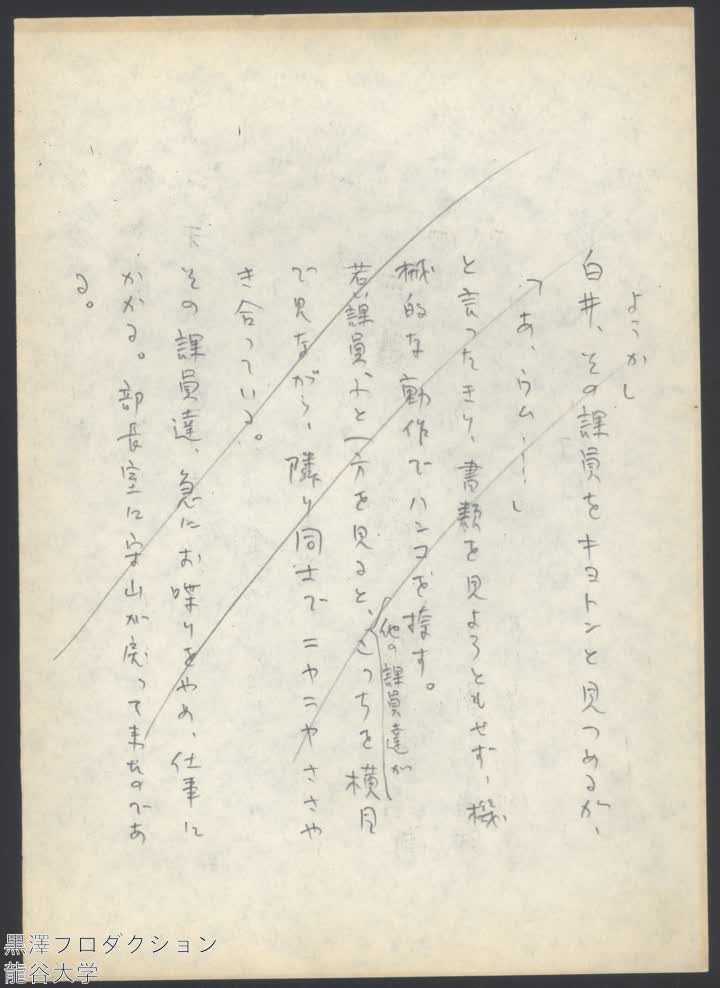 ようかし
白井、その課員をキョトンと見つめるが、
「あ、ウム……」
と言ったきり、書類を見ようともせず、機
械的な動作でハンコを捺す。
若い課員ふと一方を見ると、こっちを横目
他の課員達が
で見ながら、隣り同士でニヤニヤささや
き合っている。
その課員達、急にお喋りをやめ、仕事に
かかる。部長室に守山が戻って来たのであ
る。
黒澤プロダクション
龍谷大学